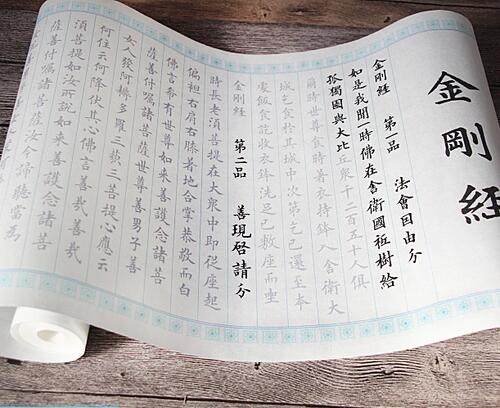 金剛経
金剛経 第一品 法會因由分
如是我聞一時佛在舍衛國祗樹給
孤獨園與大比丘衆千二百五十人俱
爾時世尊食時著衣持鉢入舍衛大
城乞食於其城中次第乞已還至本
處飯食訖收衣鉢洗足已敷座而坐
金剛経 第二品 善現啓請分
時長老須菩提在大衆中即從座起
偏袒右肩右膝著地合掌恭敬而白
佛言希有世尊如来善護念諸菩
薩善付囑諸菩薩世尊善男子善
女人發阿耨多羅三藐三菩提心應云
何住云何降伏其心佛言善哉善哉
須菩提如汝所說如来善護念諸菩
薩善付囑諸菩薩汝今諦聽當為